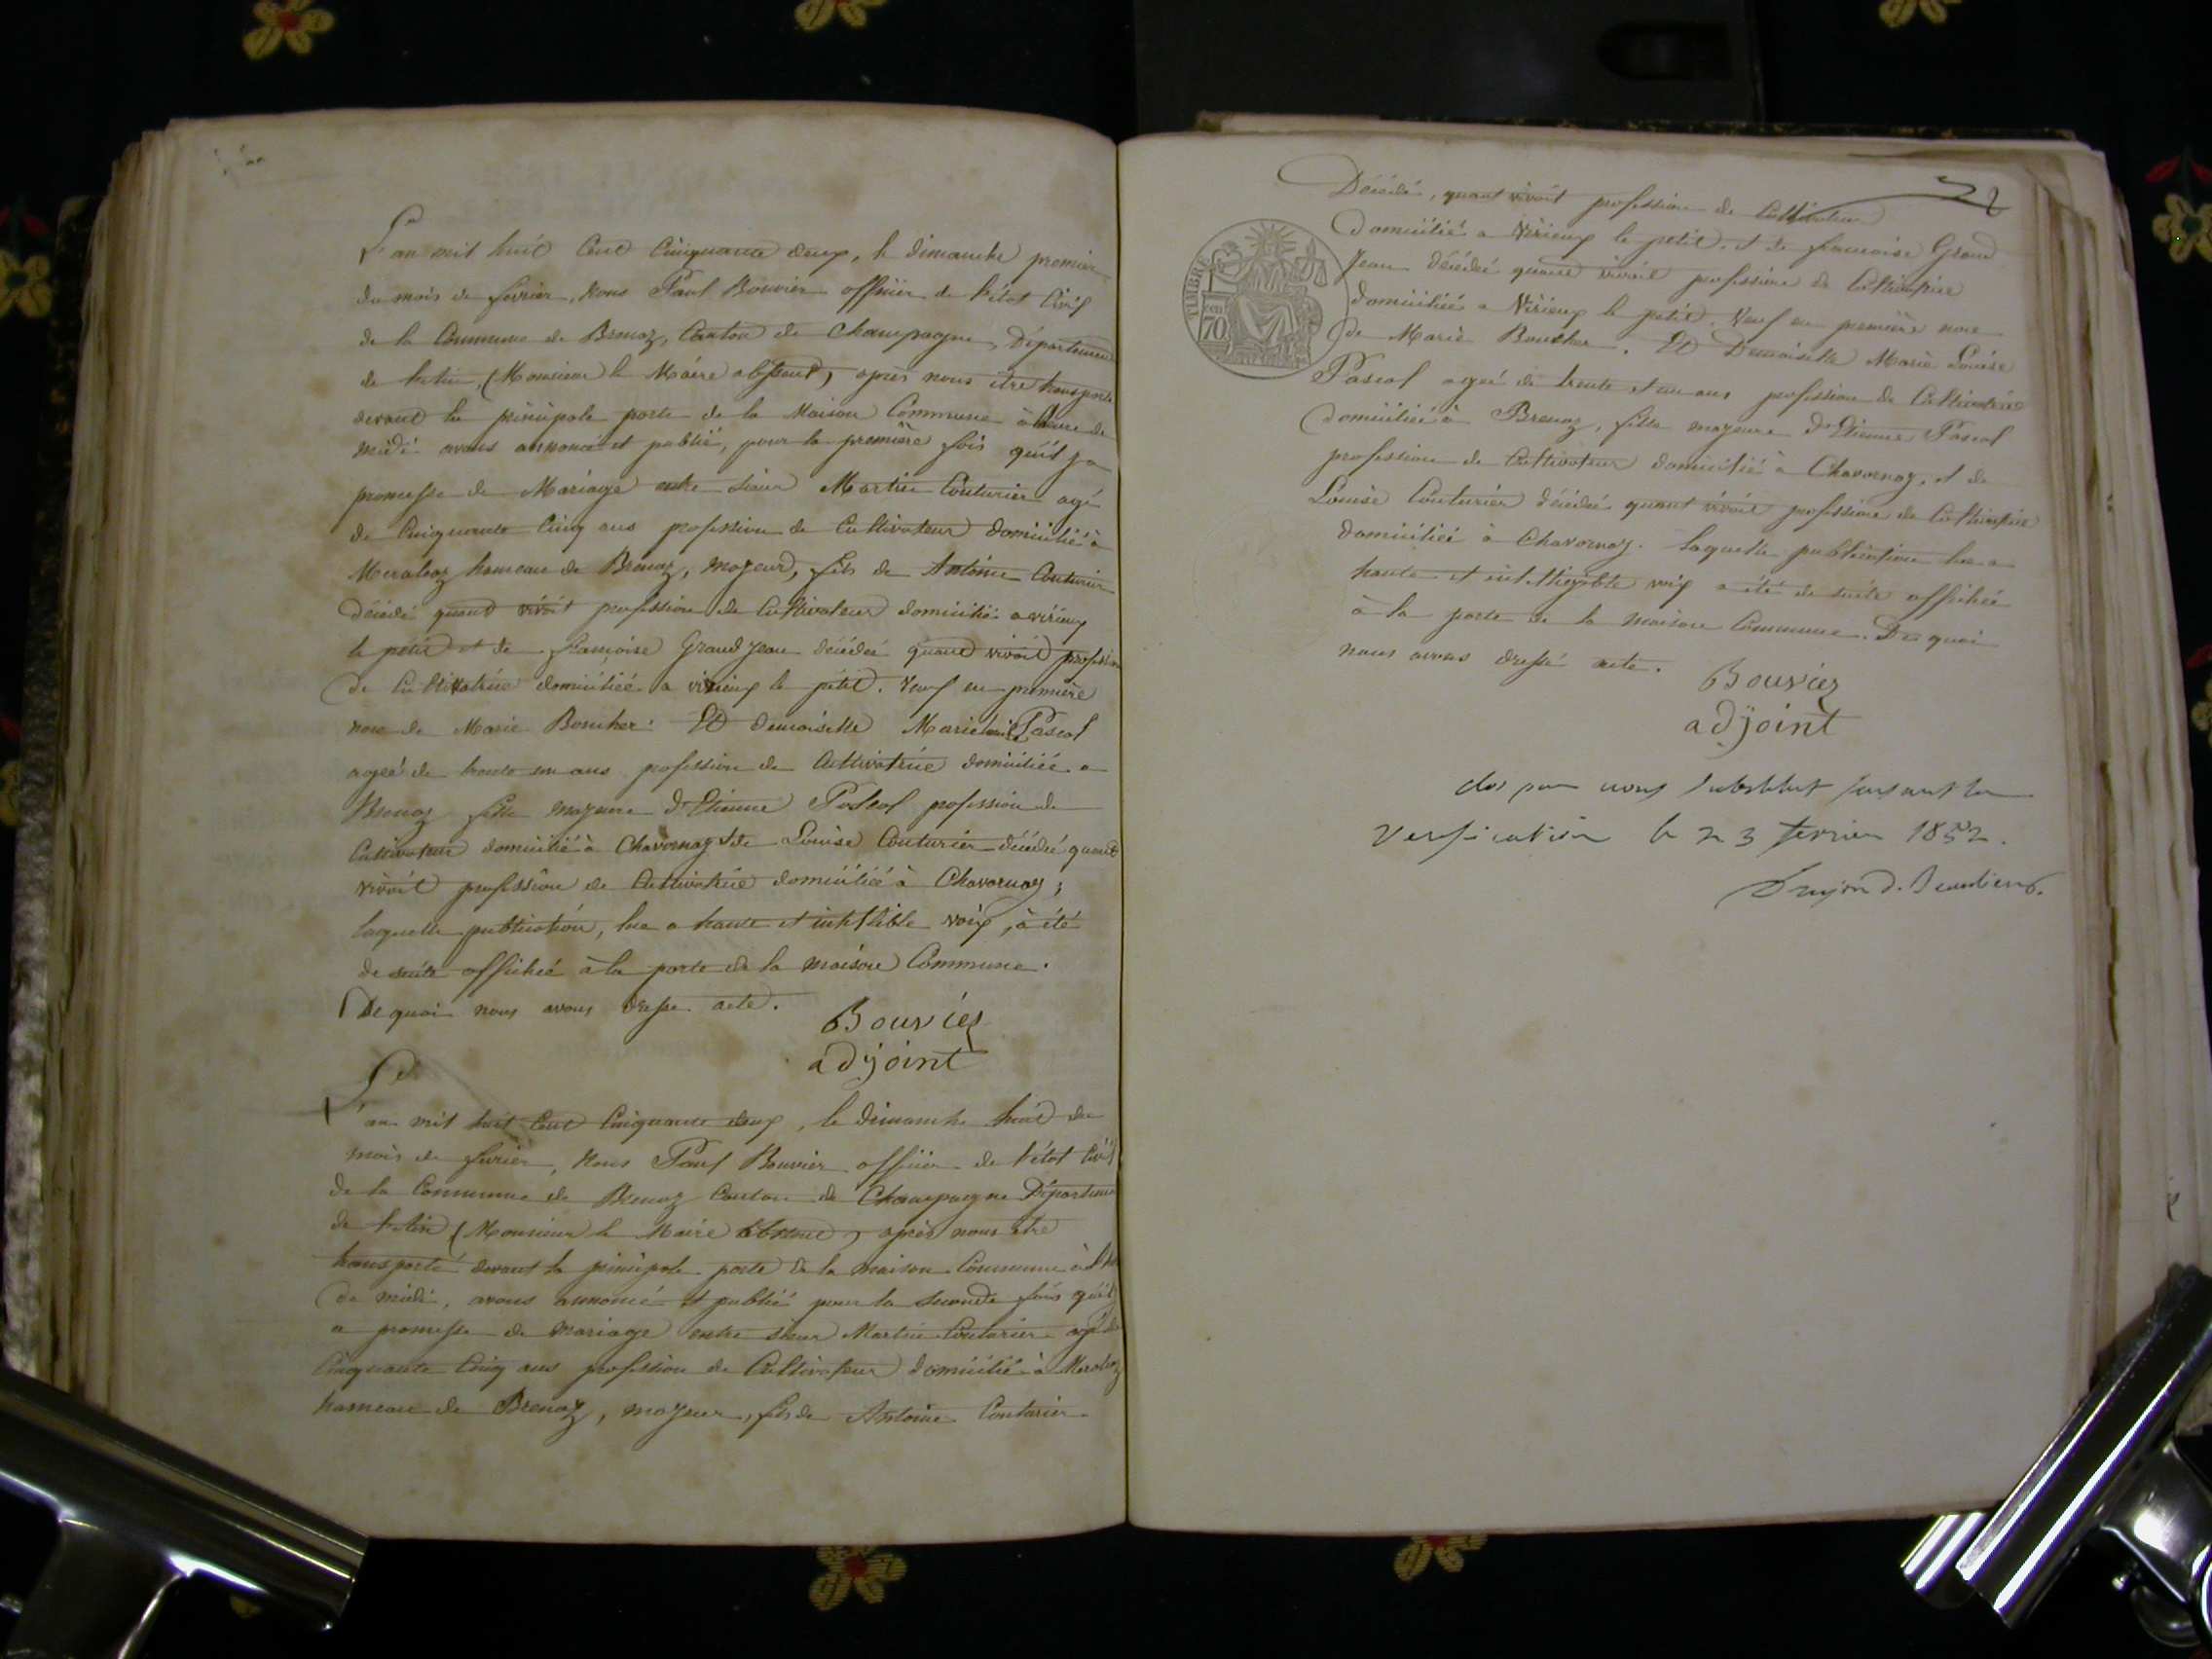 L'an mil huit Cent Cinquante deux, le dimanche premier
du mois de fevrier, Nous Paul Bouvier officier de l'état Civil
de la Commune de Brenaz, Canton de Champagne, Département
de l'ain, (Monsieur le Maire abssent) après nous être transporté
devant la principale porte de la Maison Commune à l'heure de
midi avons annoncé et publié, pour la première fois qu'il y a
promesse de Mariage entre sieur Martin Couturier agé
de Cinquante Cinq ans profession de Cultivateur domicilié à
Meraleaz hameau de Brenaz, majeur, fils de Antoine Couturier
décédé quand vivoit profession de Cultivateur domicilié a virieux
le petit et de françoise Grand Jean décédée quand vivoit profession
de Cultivatrice domiciliée a virieux le petit. Veuf en première
noce de Marie Boucher. Et demoiselle Marie louise Pascal
ageé de trente un ans profession de Cultivatrice domiciliée a
Brenaz fille majeure d'Etienne Pascal profession de
Cultivateur domicilié à Chavornay et de Louise Couturier décédée quand
vivoit profession de Cultivatrice domiciliée à Chavornay;
laquelle publication, lue a haute et intellible voix, à été
de suite affichée à la porte de la maison Commune.
De quoi nous avons dressé acte.
Bouvier
adjoint
L'an mil huit Cent Cinquante deux, le dimanche huit du
mois de fevrier, Nous Paul Bouvier officier de l'état Civil
de la Commune de Brenaz Canton de Champagne Département
de l'ain (Monsieur le Maire abssent) après nous être
transporté devant la principale porte de la maison Commune à l'heure
de midi, avons annoncé et publié pour la seconde fois qu'il y
a promesse de mariage entre sieur Martin Couturier agé de
Cinquante Cinq ans profession de Cultivateur domicilié à Meraleaz
hameau de Brenaz, majeur, fils de Antoine Couturier
Décédé, quant vivoit profession de Cultivateur
domicilié a Virieux le petit, et de francoise Grand
Jean décédée quand vivoit profession de Cultivatrice
domiciliée a Virieux le petit, Veuf en première noce
de Marie Boucher. Et Demoiselle Marie Louise
Pascal ageé de trente et un ans profession de Cultivatrice
domiciliée à Brenaz, fille majeure d'Etienne Pascal
profession de Cultivateur domicilié à Chavornay, et de
Louise Couturier décédée quant vivoit profession de Cultivatrice
domiciliée à Chavornay. laquelle publication lue a
haute et intelligible voix a été de suite affichée
à la porte de la maison Commune. De quoi
nous avons dressé acte.
Bouvier
adjoint
clos par nous substitut faisant la
verification le 23 fevrier 1852.
TIMBRE
70